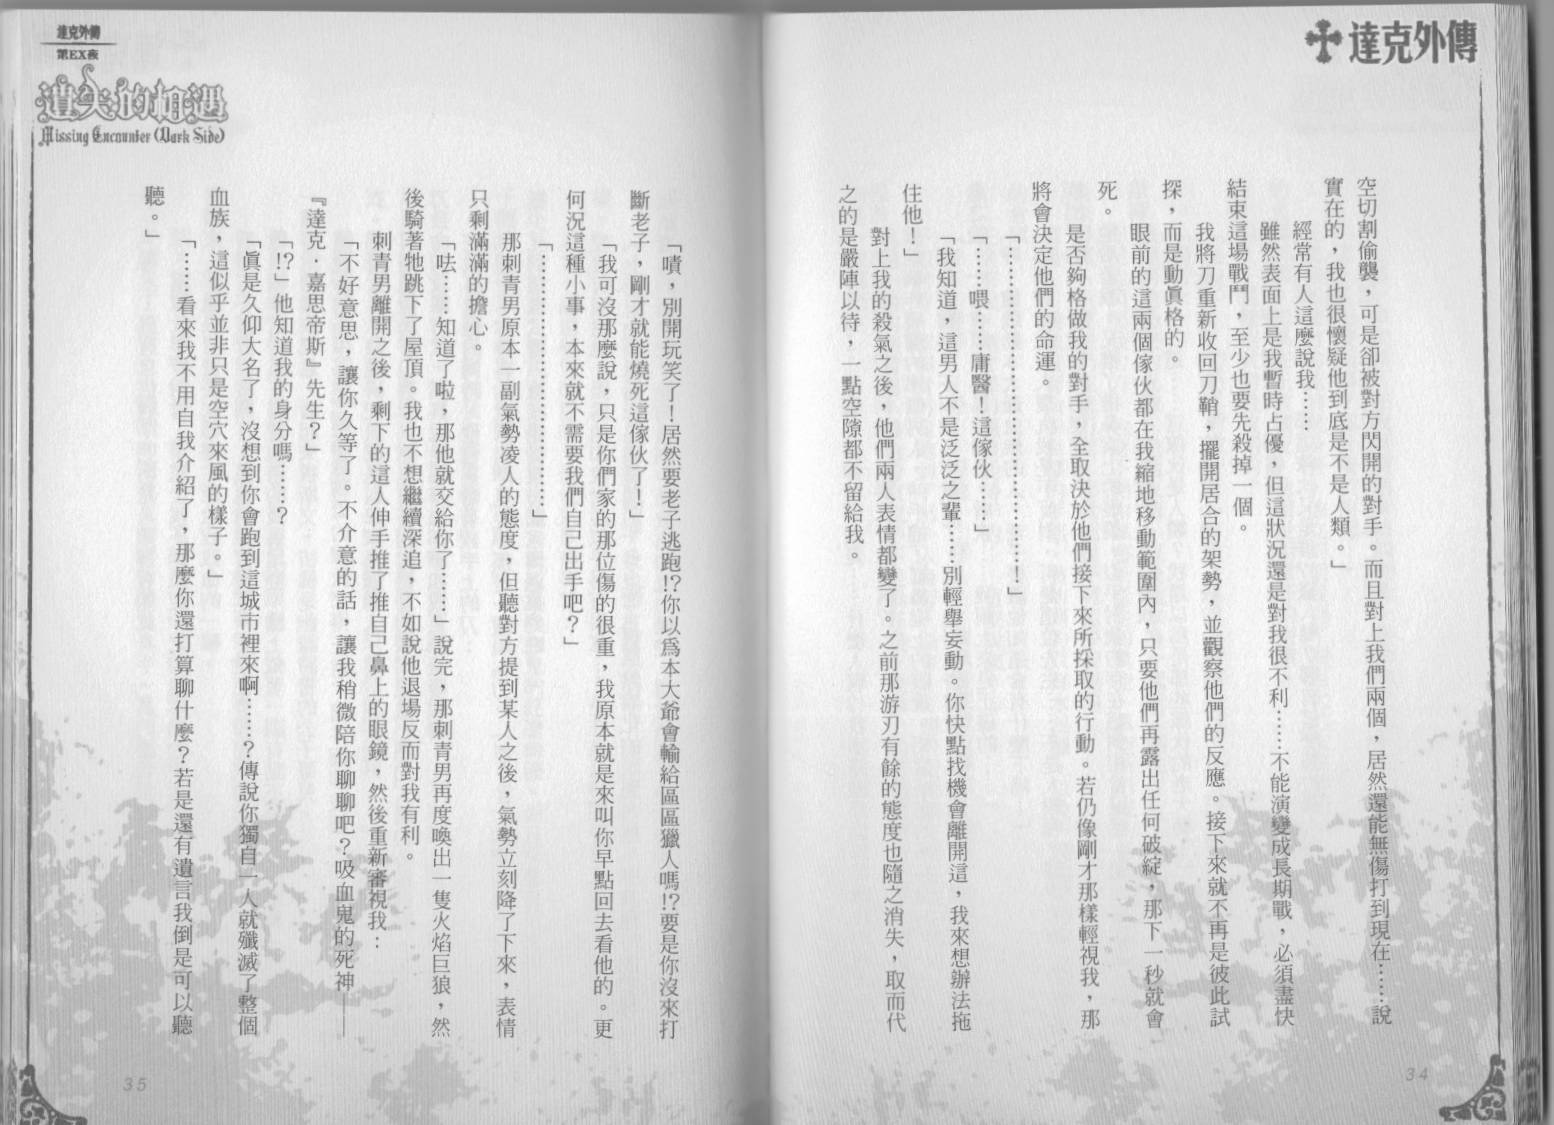 達克外傳
空切割偷襲，可是卻被對方閃開的對手。而且對上我們兩個，居然還能無傷打到現在……說
實在的，我也很懷疑他到底是不是人類。」
經常有人這麼說我……
雖然表面上是我暫時占優，但這狀況還是對我很不利……不能演變成長期戰，必須盡快
結束這場戰鬥，至少也要先殺掉一個。
我將刀重新收回刀鞘，擺開居合的架勢，並觀察他們的反應。接下來就不再是彼此試
探，而是動真格的。
眼前的這兩個傢伙都在我縮地移動範圍內，只要他們再露出任何破綻，那下一秒就會
死。
是否夠格做我的對手，全取決於他們接下來所採取的行動。若仍像剛才那樣輕視我，那
將會決定他們的命運。
「……………………………………！」
「……喂……庸醫！這傢伙……」
「我知道，這男人不是泛泛之輩……別輕舉妄動。你快點找機會離開這，我來想辦法拖
住他！」
對上我的殺氣之後，他們兩人表情都變了。之前那游刃有餘的態度也隨之消失，取而代
之的是嚴陣以待，一點空隙都不留給我。
34
達克外傳
第EX夜
遺失的相遇
Missing Encounter (Dark Side)
「嘖，別開玩笑了！居然要老子逃跑!?你以為本大爺會輸給區區獵人嗎!?要是你沒來打
斷老子，剛才就能燒死這傢伙了！」
「我可沒那麼說，只是你們家的那位傷的很重，我原本就是來叫你早點回去看他的。更
何況這種小事，本來就不需要我們自己出手吧？」
「……………………………」
那刺青男原本一副氣勢凌人的態度，但聽對方提到某人之後，氣勢立刻降了下來，表情
只剩滿滿的擔心。
「呿……知道了啦，那他就交給你了……」說完，那刺青男再度喚出一隻火焰巨狼，然
後騎著牠跳下了屋頂。我也不想繼續深追，不如說他退場反而對我有利。
刺青男離開之後，剩下的這人伸手推了推自己鼻上的眼鏡，然後重新審視我：
「不好意思，讓你久等了。不介意的話，讓我稍微陪你聊聊吧？吸血鬼的死神——
『達克．嘉思帝斯』先生？」
「!?」他知道我的身分嗎……？
「真是久仰大名了，沒想到你會跑到這城市裡來啊……？傳說你獨自一人就殲滅了整個
血族，這似乎並非只是空穴來風的樣子。」
「……看來我不用自我介紹了，那麼你還打算聊什麼？若是還有遺言我倒是可以聽
聽。」
35